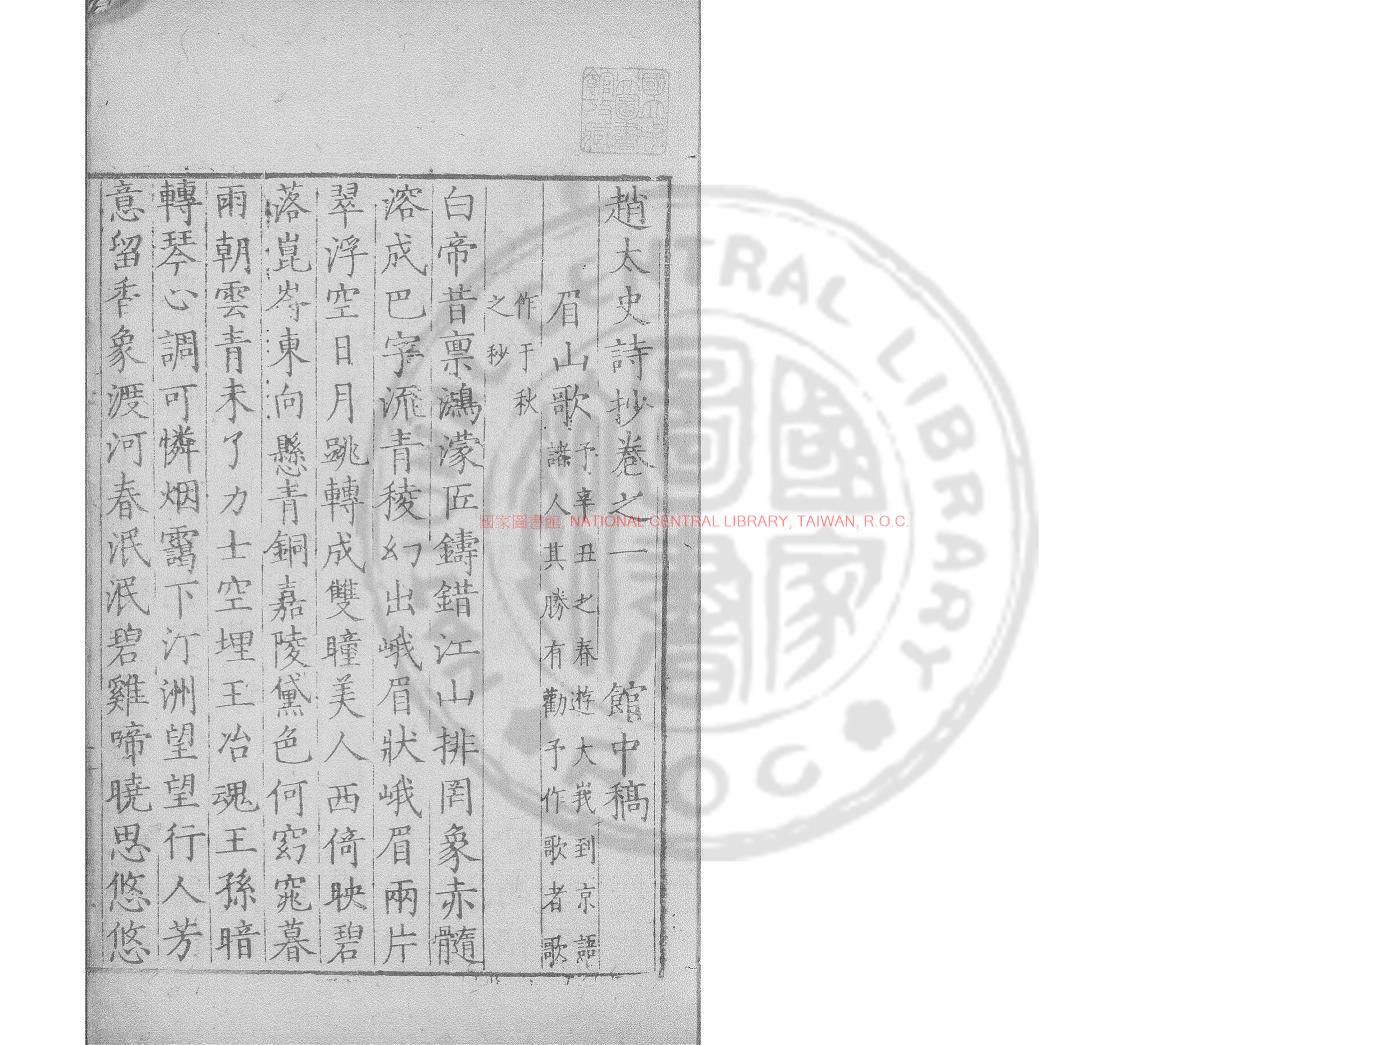 趙太史詩抄卷之一　館中稿
眉山歌 予辛丑之春遊大峩到京語
諸人其勝有勸予作歌者歌
作于秋
之秒
白帝昔禀鴻濛匠鑄錯江山排罔象赤髓
溶成巴字流青稜幻出峨眉狀峨眉兩片
翠浮空日月跳轉成雙瞳美人西倚映碧
落崑崙東向懸青銅嘉陵黛色何窈窕暮
雨朝雲青未了力士空埋王冶魂王孫暗
轉琴心調可憐烟靄下汀洲望望行人芳
意留香象渡河春泯泯碧雞啼曉思悠悠
國家圖書館, NATIONAL CENTRAL LIBRARY, TAIWAN, R.O.C.